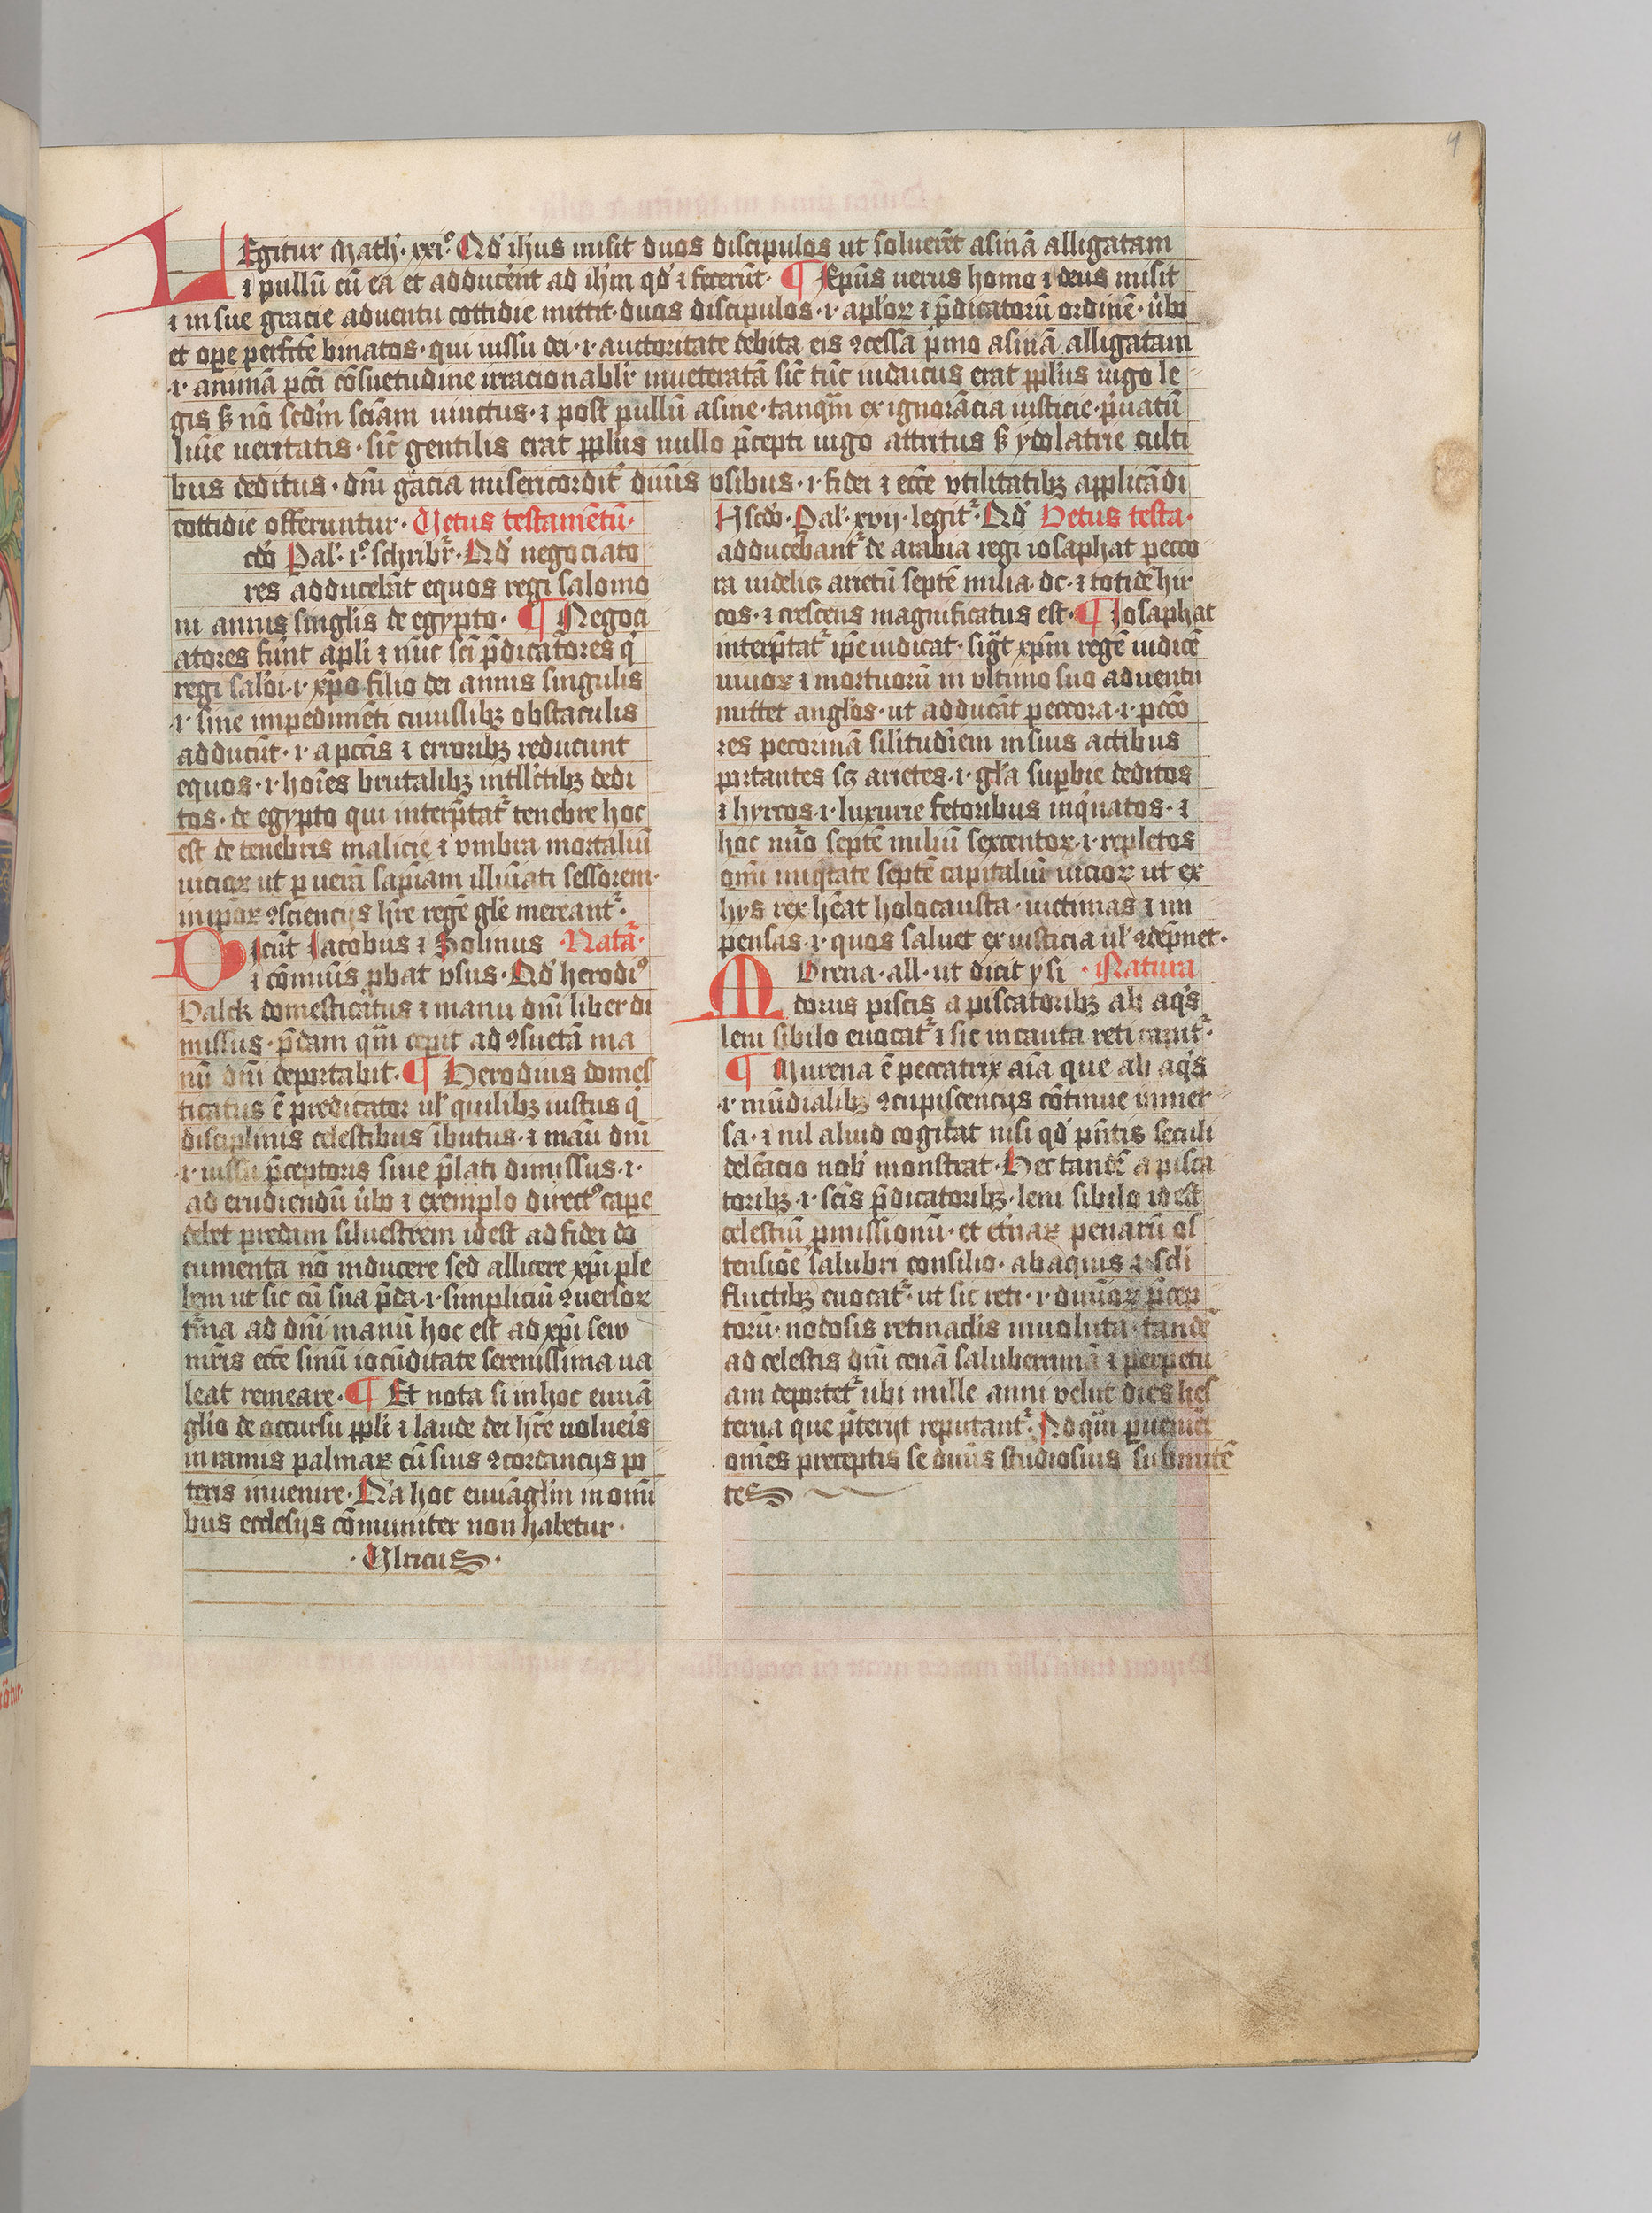 4
LEgitur Math̕· xxi°· Qd̕ ih̅us misit duos discipulos ut soluere̅t asina̅ alligatam
⁊ pullu̅ cu̅ ea et adduce̅nt ad ih̅m qd̕ ⁊ fecerūt· ¶ Xp̅us uerus homo ⁊ deus misit
⁊ in sue gracie aduentu cottidie mittit· duos discipulos· ·i· apl̕oꝝ ⁊ p̅dicatoru̅ ordine̅· u̅bo
et oꝑe ꝑfc̅te binatos· qui iussu dei· ·i· auctoritate debita eis ꝯcessa p̕mo asina̅ alligatam
·i· anima̅ pcc̅i co̅suetudine irracionabl̕r inueterata̅ sic̅ tu̅c iudaicus erat ppl̕us iugo le
gis sꝫ no̅ scd̅m scia̅m uinctus· ⁊ post pullu̅ asine· tanq̅m ex ignora̅cia iusticie· p̕uatu̅
lu̅ie ueritatis· sic̅ gentilis erat ppl̕us nullo p̅cepti iugo attritus sꝫ ydolatrie culti
bus deditus· dn̅i gr̅acia misericordit̕ diuīs vsibus· ·i· fidei ⁊ ecc̅e vtilitatibꝫ applica̅di
cottidie offeruntur· Vetus testame̅tu̅·
cd̕o Pal̕· i° schribr̕· Qd̕ negociato
res adduceba̅t equos regi salomo
ni annis singl̕is de egypto· ¶ Negoci
atores su̅nt apl̕i ⁊ nu̅c sc̅i p̅dicatores q̕
regi salōi· ·i· xp̅o filio dei annis singulis
·i· sine impedime̅ti cuiuslibꝫ obstaculis
adducu̅t· ·i· a pcc̅is ⁊ erroribꝫ reducunt
equos· ·i· hoi̅es brutalibꝫ intll̕ctibꝫ dedi
tos· de egypto qui interp̅tat̕ tenebre hoc
est de tenebris malicie ⁊ vmbra mortaliu̅
uicioꝝ ut ꝑ uera̅ sapi̅am illu̅iati sessorem·
in ip̅oꝝ ꝯsciencijs h̅re rege̅ gl̅e mereant̕·
DIcūt Jacobus ⁊ Solinus· Nata̅·
⁊ co̅muīs ꝓbat vsus· Qd̕ herodi°
Valck domesticatus ⁊ manu dn̅i liber di
missus· p̅dam q̅m cepit ad ꝯsueta̅ ma
nu̅ dn̅i deportabit· ¶ Herodius domes
ticatus e̅ predicator ul̕ quilibꝫ iustus q̕
disciplinis celestibus i̅butus· ⁊ manu dn̅i
·i· iussu p̅ceptoris siue p̅lati dimissus· ·i·
ad erudiendu̅ u̅bo ⁊ exemplo direct° caꝑe
debet predam siluestrem id est ad fidei do
cumenta no̅ inducere sed allicere xp̅i ple
bem ut sic cu̅ sua p̅da· ·i· simpliciu̅ ꝯuersoꝝ
t̅ma ad dn̅i manu̅ hoc est ad xp̅i seu
mr̅is ecc̅e sinu̅ iocu̅ditate serenissima ua
leat remeare· ¶ Et nota si in hoc euua̅
gl̕io de occursu ppl̕i ⁊ laude dei h̅re uolueis
in ramis palmaꝝ cu̅ suis ꝯcordancijs po
teris inuenire· Na̅ hoc euua̅gl̕m in omni
bus ecclesijs co̅muniter non habetur·
·Ulricus·
Hscd̕o· Pal̕· xvij· legit̕· Qd̕ Vetus testa·
adduceba̅nt̕ de arabia regi iosaphat pecco
ra uidelicꝫ arietu̅ septe̅ milia· dc· ⁊ totide̅ hir
cos· ⁊ crescens magnificatus est· ¶ Josaphat
interp̅tat̕ ip̅e iudicat· sig̅t xp̅m rege̅ iudice̅
uiuoꝝ ⁊ mortuoru̅ in vltimo suo aduentu
mittet angl̕os· ut adduca̅t peccora· ·i· pcc̅o
res pecorina̅ silitudi̅em in suis actibus
portantes scꝫ arietes· ·i· gl̅a suꝑbie deditos
⁊ hyrcos· ·i· luxurie fetoribus inq̕natos· ⁊
hoc nu̅o septe̅ miliu̅ sexcentoꝝ· ·i· repletos
omni iniq̕tate septe̅ capitaliu̅ uicioꝝ ut ex
hys rex h̅eat holocausta· uictimas ⁊ im
pensas· ·i· quos saluet ex iusticia ul̕ ꝯdēpnet·
MOrena· all· ut dicit ysi· Natura
dorus piscis a piscatoribꝫ ab aq̕s
leni sibilo euocat̕ ⁊ sic incauta reti capit̕·
¶ Murena e̅ peccatrix ai̅a que ab aq̕s
·i· mu̅dialibꝫ ꝯcupiscencijs co̅tinue inmer
sa· ⁊ nil aliud cogitat nisi qd̕ pn̅tis seculi
delc̅acio nob̕ monstrat· Hec tande̅ a pisca
toribꝫ· ·i· sc̅is p̅dicatoribꝫ· leni sibilo id est
celestiu̅ ꝓmissionu̅· et et̅naꝝ penaru̅ os
tensioe̅ salubri consilio· ab aquis ⁊ scl̕i
fluctibꝫ euocat̕· ut sic reti· ·i· diuīoꝝ p̅cep
toru̅· nodosis retinaclis inuoluta· tande̅
ad celestis dn̅i cena̅ saluberrima̅ ⁊ perpetu
am deportet̕ ubi mille anni velut dies hes
terna que p̅terijt reputant̕· Ad q̅m ꝑueniu̅t
omn̅es preceptis se diuīs studiosius submitte̅
tes